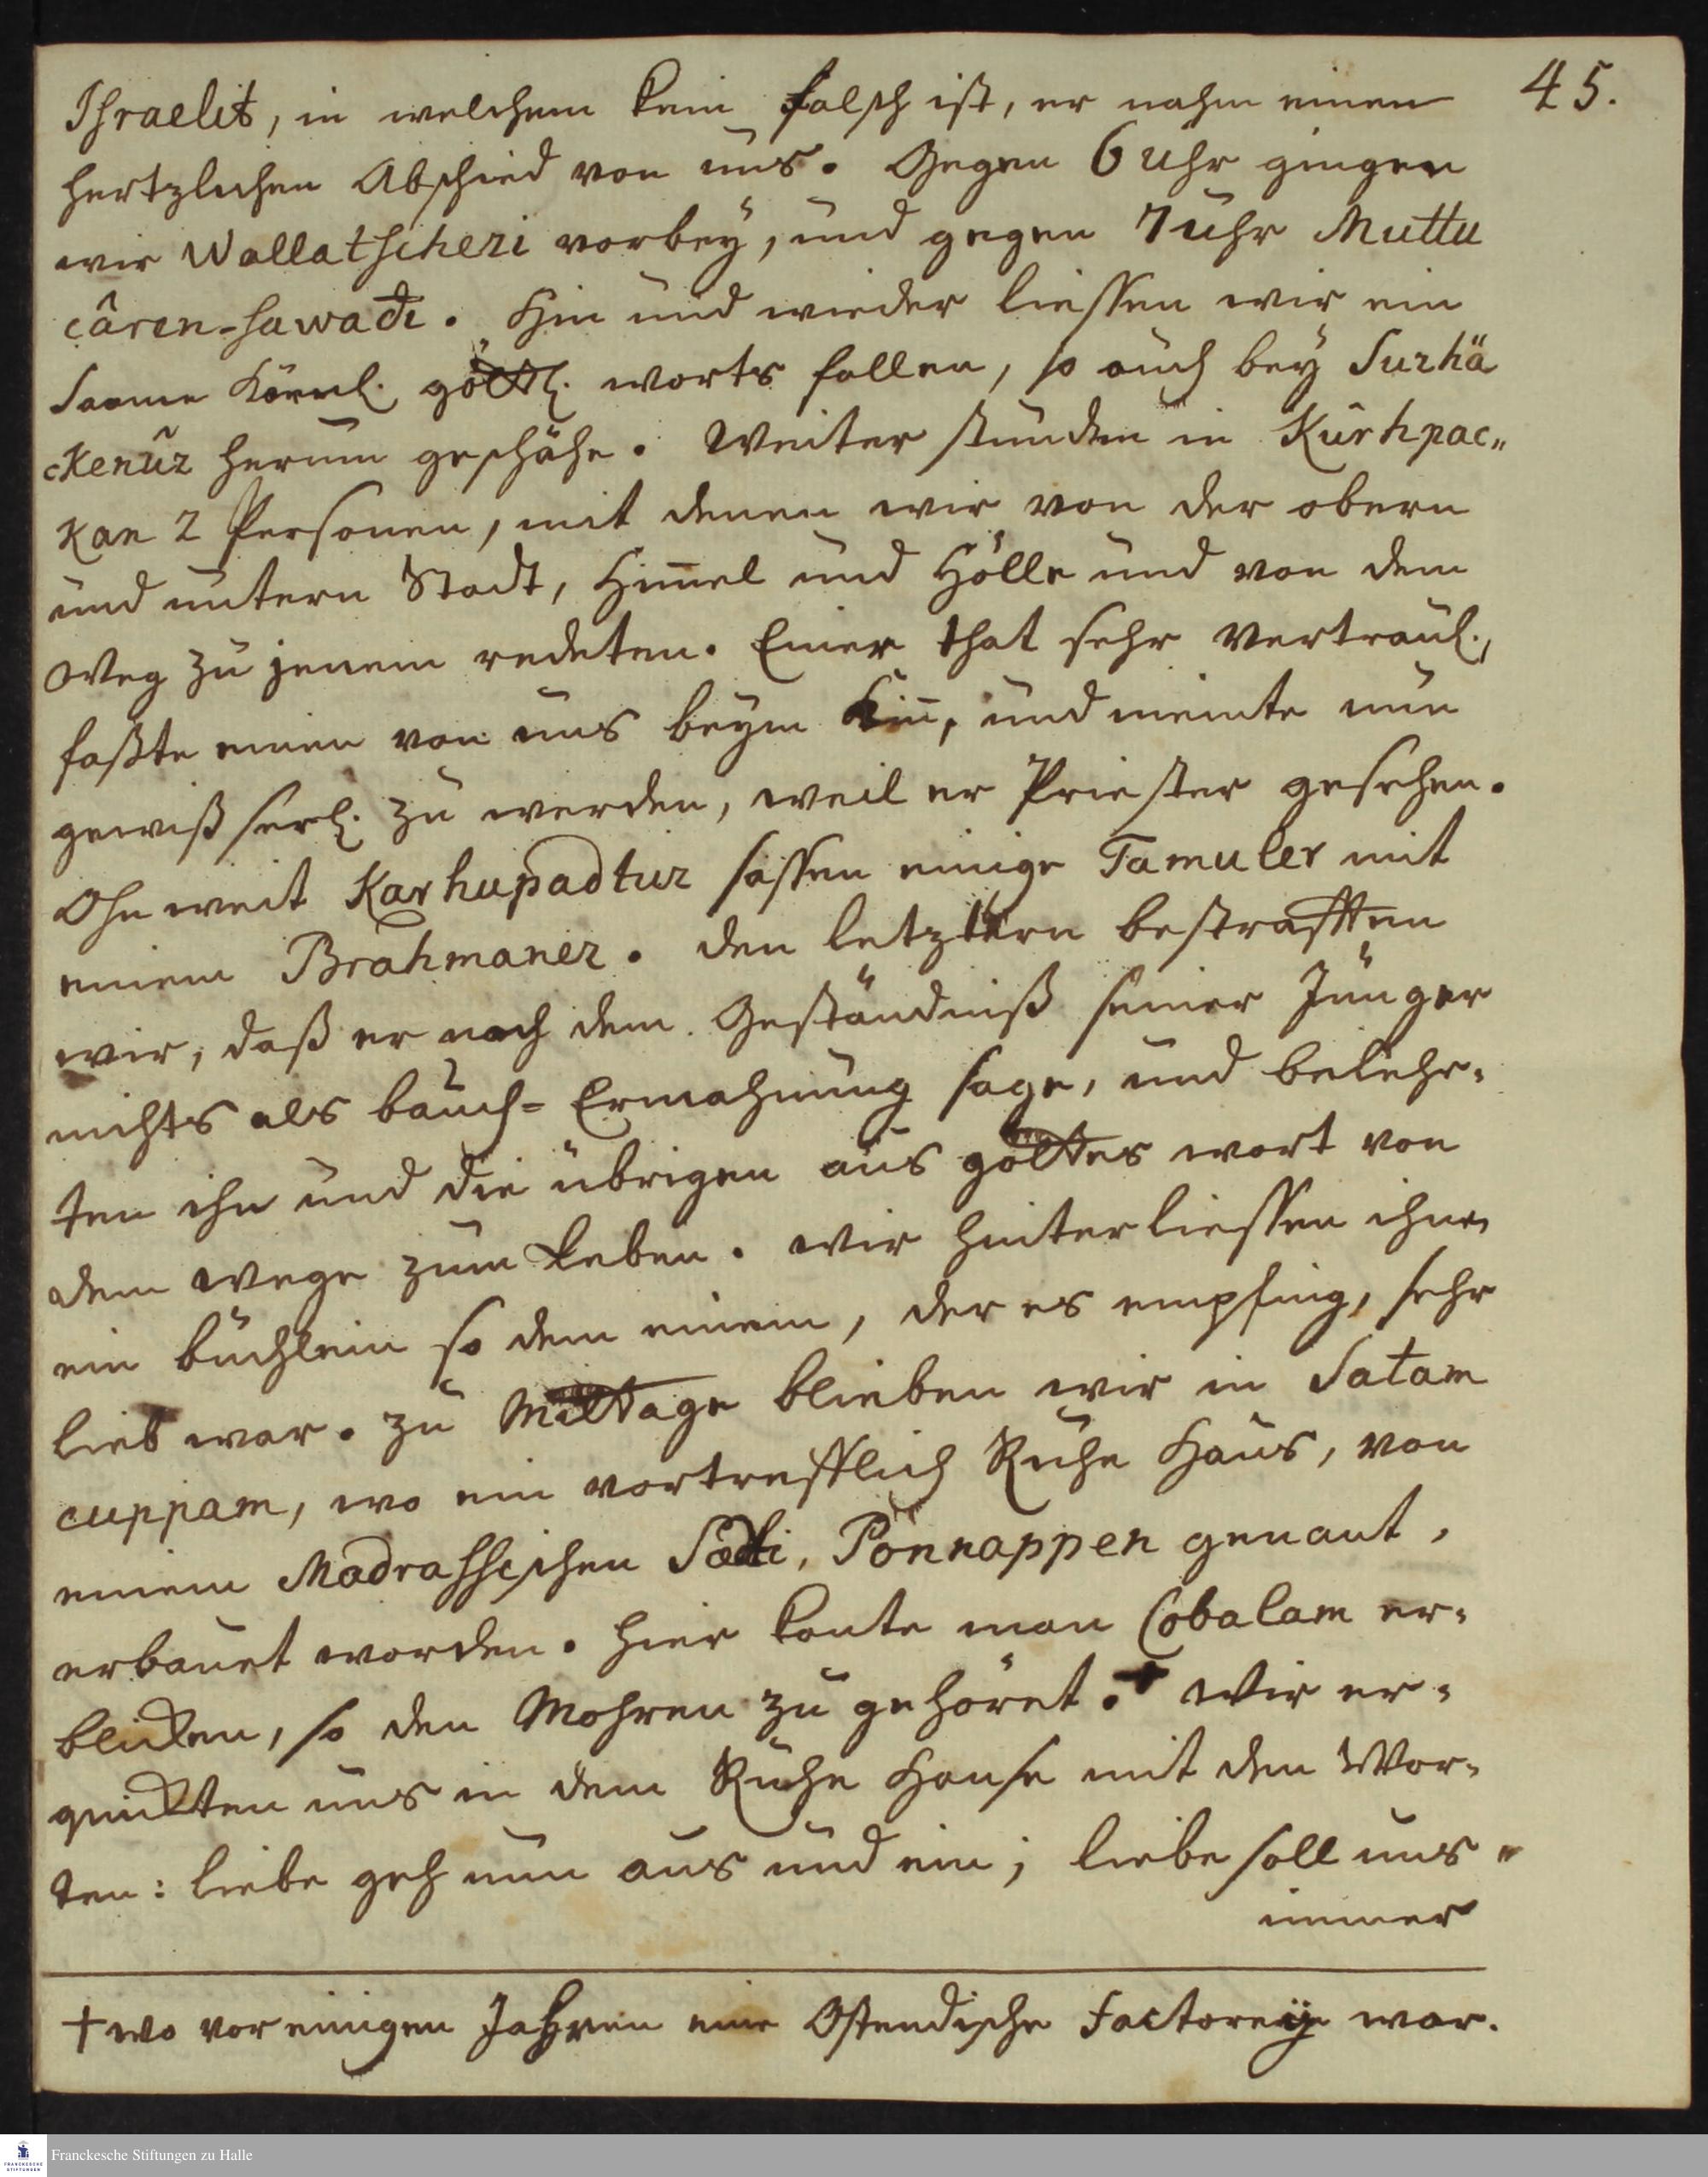 45.
Israelit, in welchem kein falsch ist, er nahm einen
hertzlichen Abschied von uns. Gegen 6 Uhr gingen
wir Wallatscheri vorbey, und gegen 7 Uhr Muttu
câren-sawadi. Hin und wieder liessen wir ein
Saamen Körnl. göttl. worts fallen, so auch bey Surhä
ckenûr herum geschähe. Weiter stunden in Kurhpac„
kan 2 Personen, mit denen wir von der obern
und untern Stadt, Him̅el und Hölle und von dem
Weg zu jenem redeten. Einer that sehr vertraul.,
faßte einen von uns beym Kin̅, und meinte nun
gewiß seel. zu werden, weil er Priester gesehen.
Ohnweit Karhupadtur sassen einige Tamuler mit
einem Brahmaner. den letztern bestrafften
wir, daß er nach dem Geständniß seiner Jünger
nichts als bauch-Ermahnung sage, und belehr-
ten ihn und die übrigen aus gottes wort von
dem wege zum Leben. wir hinterliessen ihnen
ein büchlein so dem einem, der es empfing, sehr
lieb war. zu Mittage blieben wir in Satam
cuppam, wo ein vortrefflich Ruhe Haus, von
einem Madrassischen Sedti, Ponnappen genant,
erbauet worden. hier konte man Cobalam er-
blicken, so den Mohren zu gehöret. † Wir er-
quickten uns in dem Ruhe Hause mit den Wor-
ten: liebe geh nun aus und ein; liebe soll uns
immer
† wo vor einigen Jahren eine Ostendische Factorey war.
Franckesche Stiftungen zu Halle